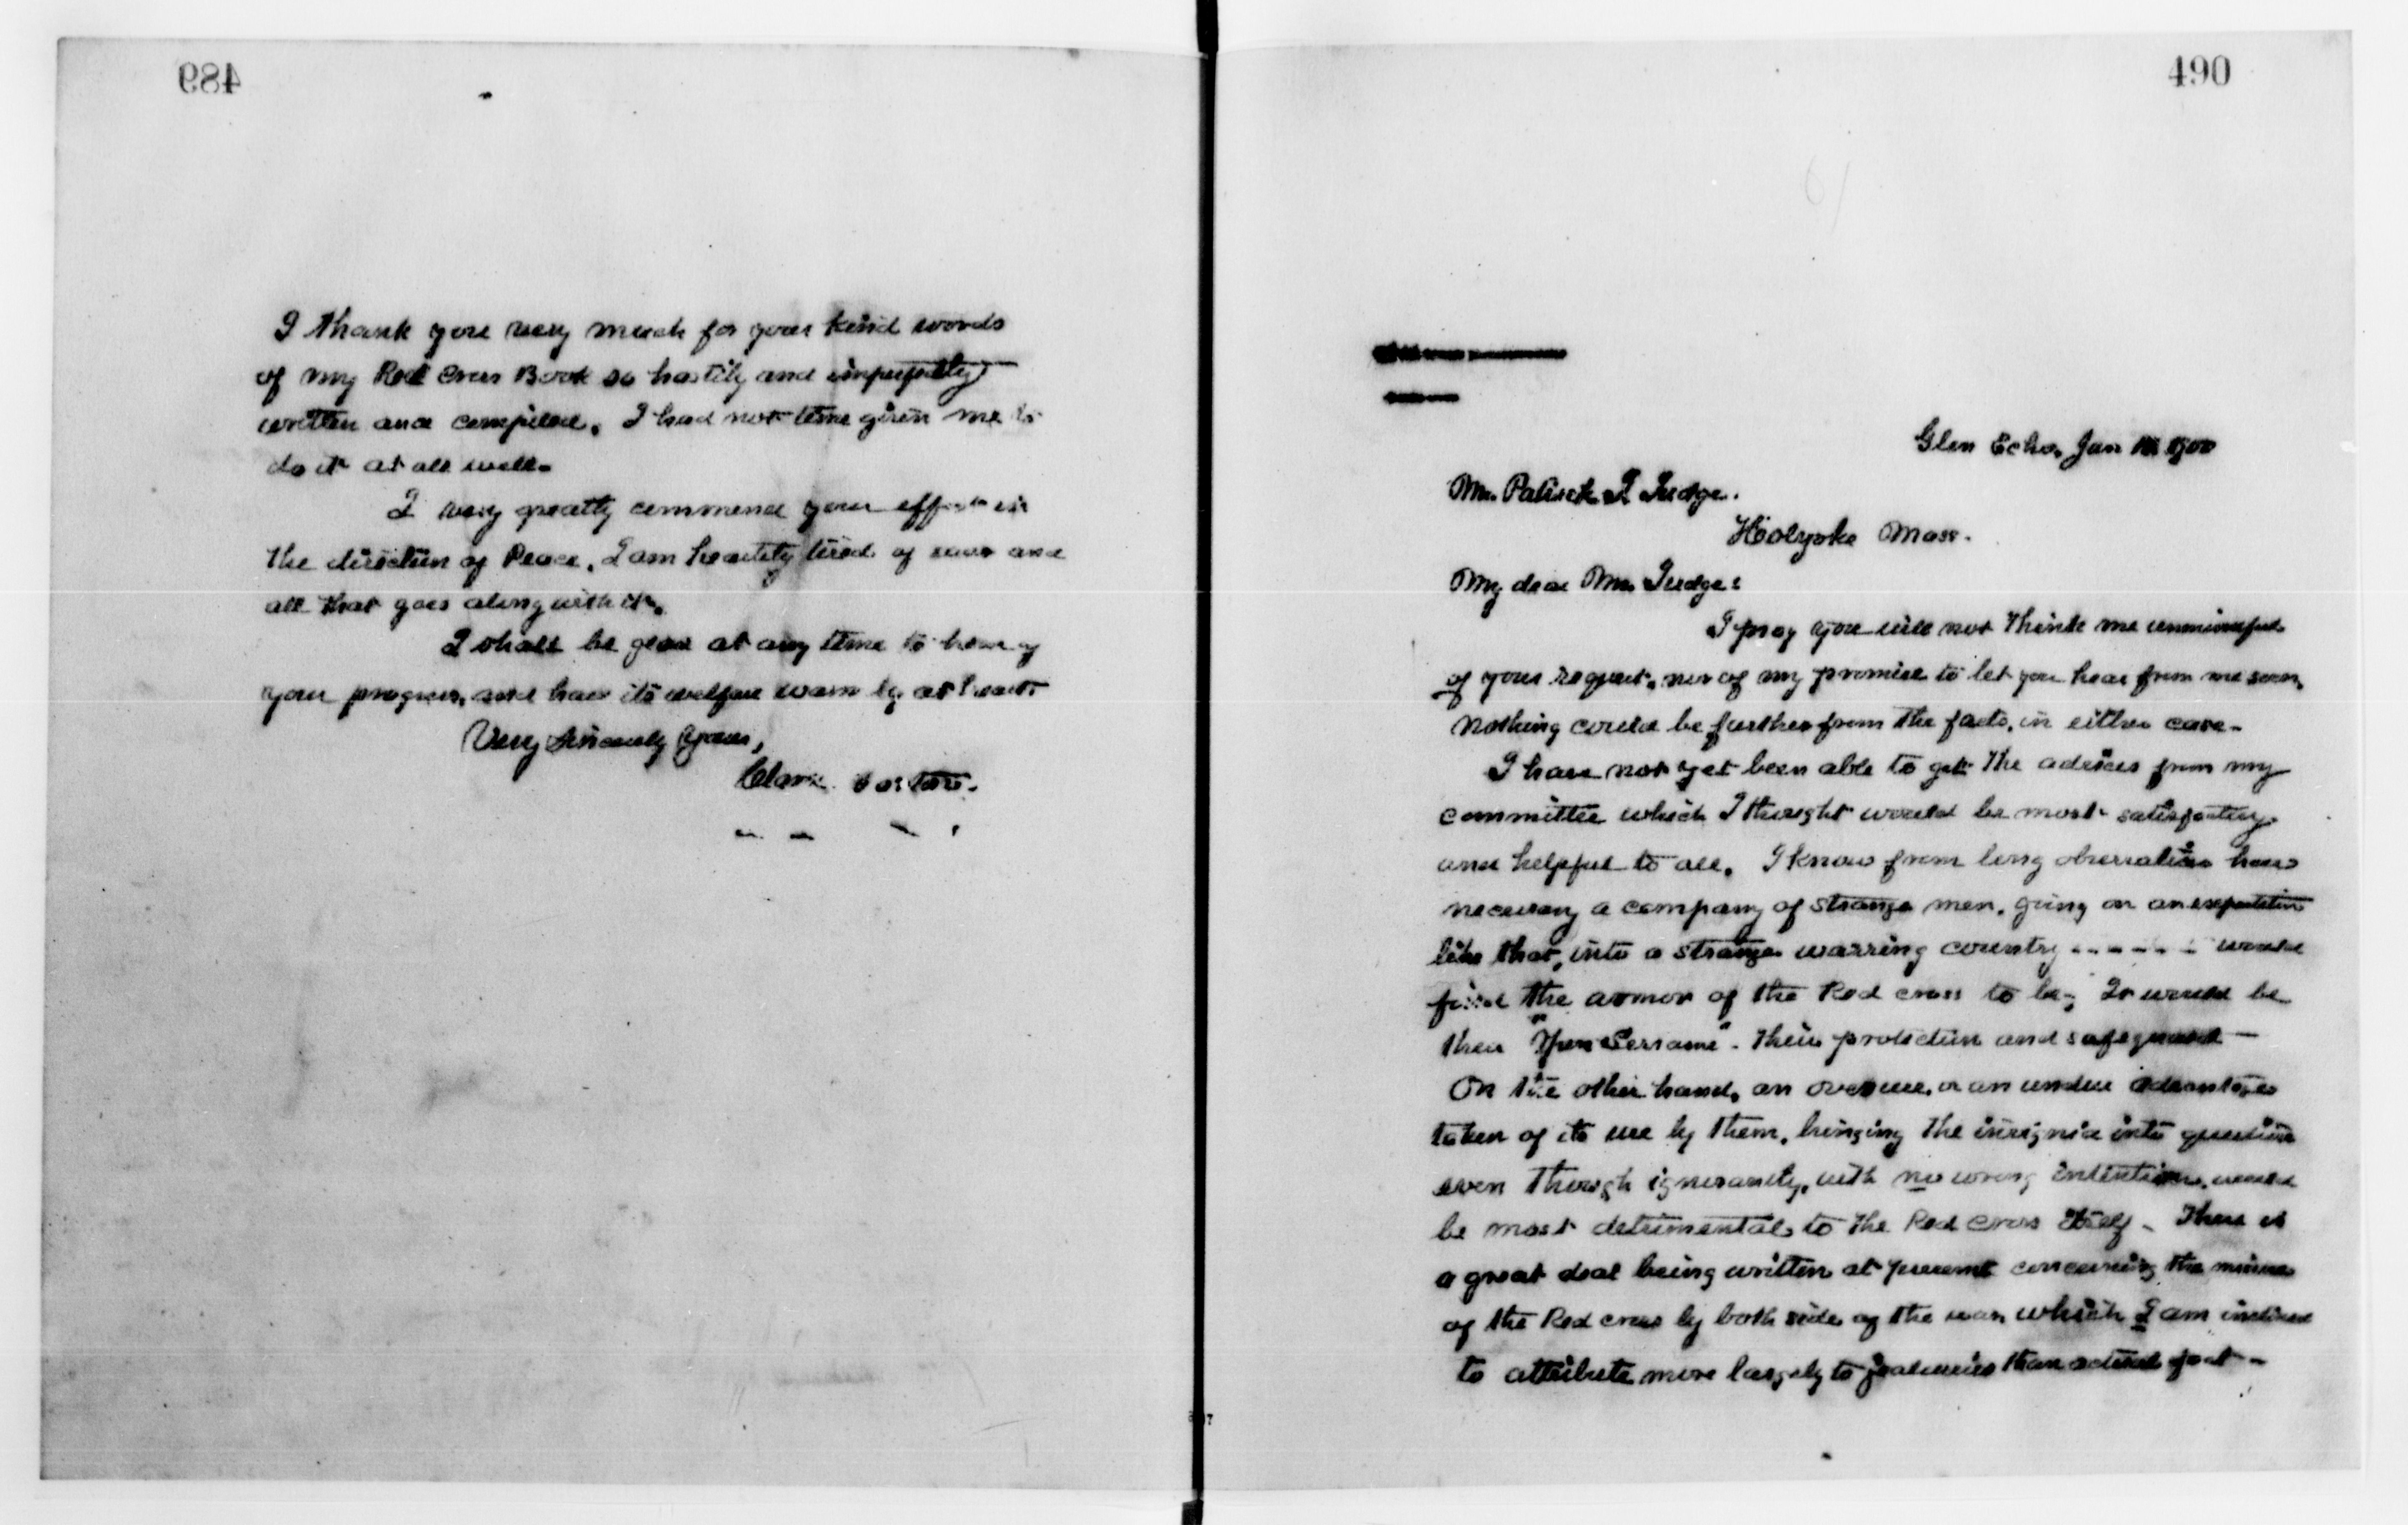 489
I thank you very much for your kind words
of my Red Cross Book so hastily and imperfectly
written and compiled. I had not time given me to
do it at all well.
I very greatly commend your effort in
the direction of Peace. I am heartily tired of war and
all that goes along with it.
I shall be glad at any time to hear of
your progress, and have its welfare warmly at heart
Very Sincerely Yours,
Clara Barton.
490
Glen Echo, Jan 1900
Mr. Patrick J Judge.
Holyoke Mass.
My dear Mr. Judge:
I pray you will not think me unmindful
of your request, nor of my promise to let you hear from me soon,
Nothing could be further from the facts, in either case -
I have not yet been able to get the advices from my
committee which I thought would be most satisfactory
and helpful to all. I know from long observation how
necessary a company of strange men, going on an expedition
like that, into a strange warring country ------ would
find the armor of the Red Cross to be; It would be
their "Open Sesame" - their protection and safeguard -
On the other hand, an over use, or an undue advantage
taken of its use by them, bringing the insignia into question
even through ignorantly, with no wrong intention, would
be most detrimental to the Red Cross itself - There is
a great deal being written at present concerning the misuse
of the Red Cross by both sides of the war which I am inclined
to attribute more largely to jealousies than actual fact -